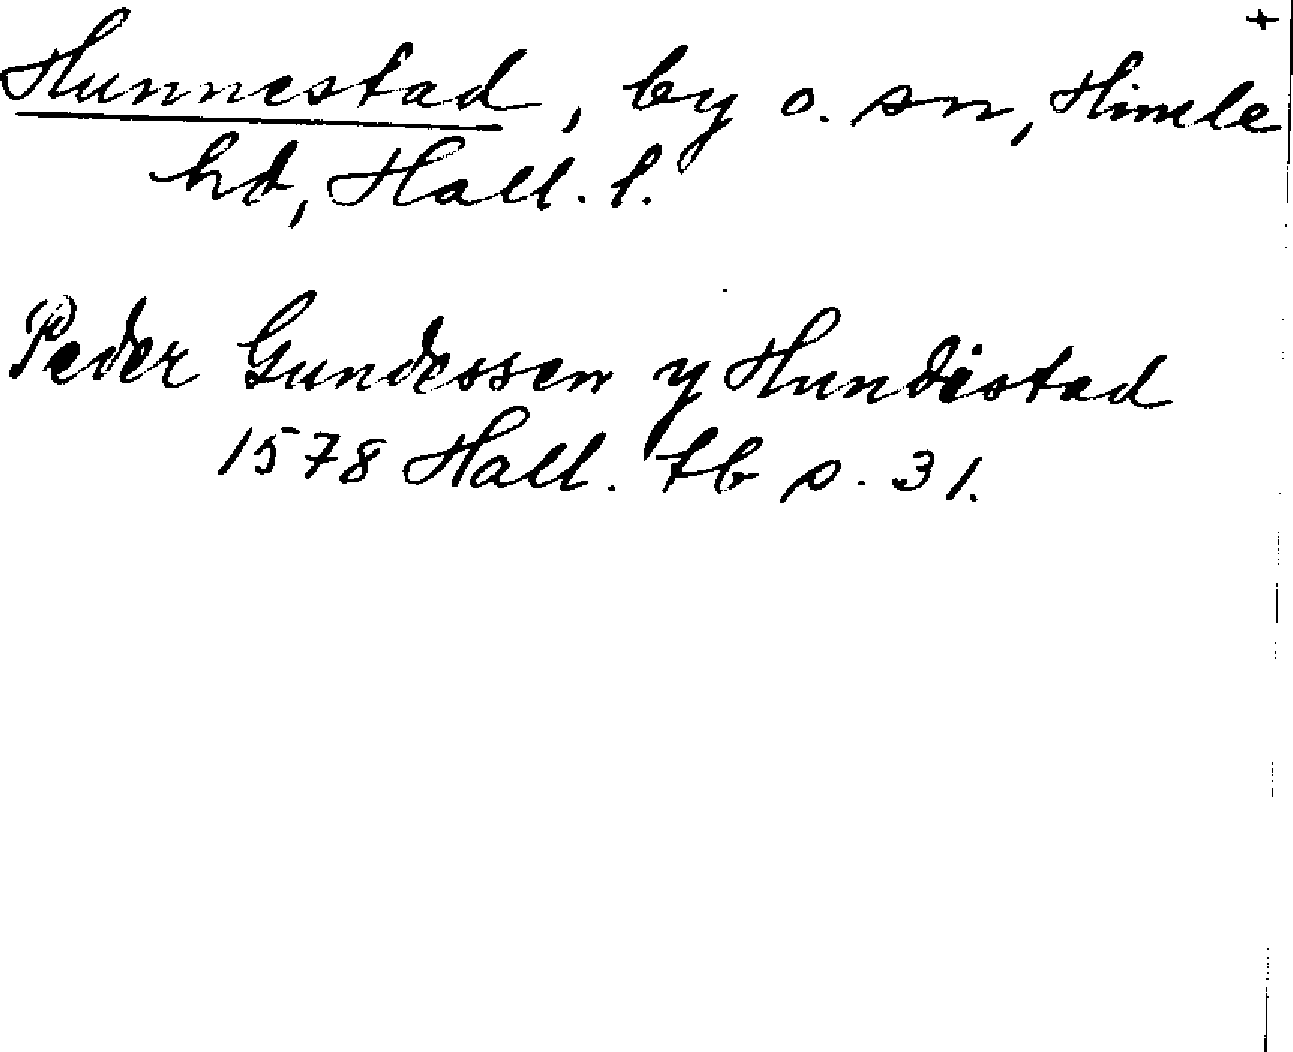 +
Hunnestad, by o. sn, Himle
hd, Hall. l.
Peder Gundessen y Hundestad
1578 Hall. tb s. 31.